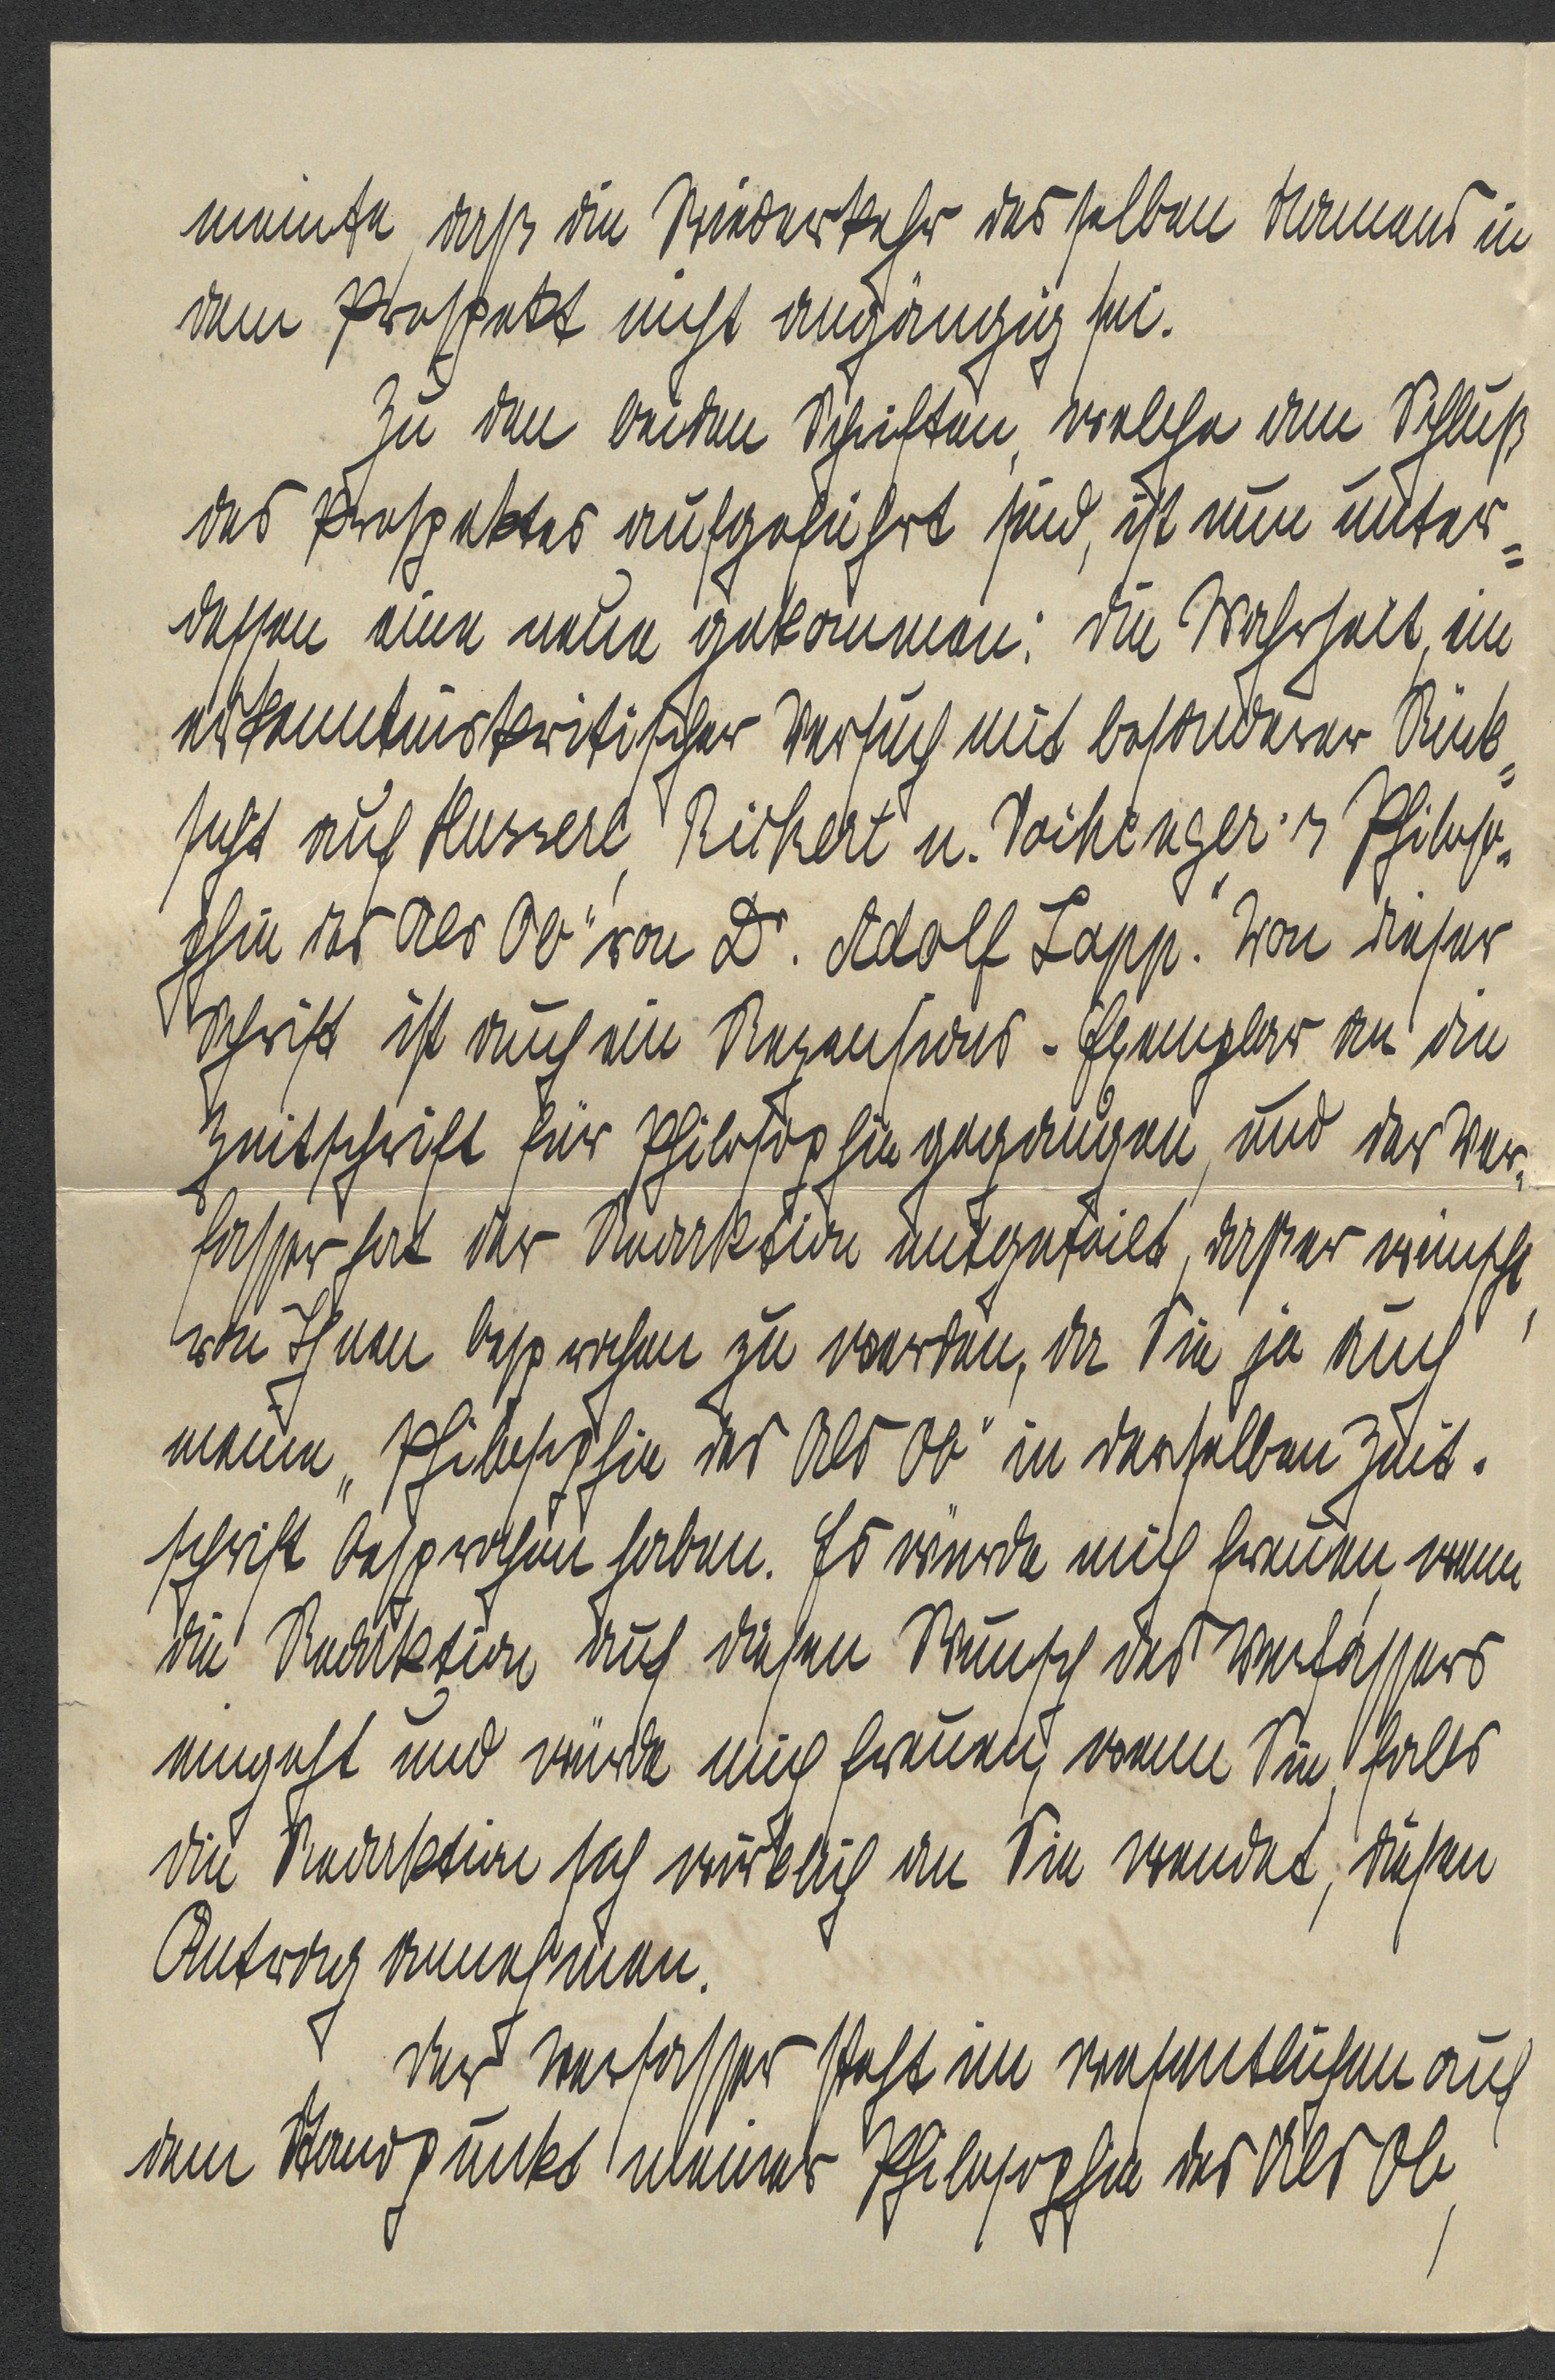 meinte, daß die Wiederkehr desselben Namens in
dem Prospekt nicht angängig sei.
Zu den beiden Schriften, welche am Schluß
des Prospektes aufgeführt sind, ist nun unter=
dessen eine neue gekommen: „Die Wahrheit, ein
erkenntniskritischer Versuch mit besonderer Rück=
sicht auf Husserl, Rickert u. Vaihinger's „Philoso=
phie des Als Ob" von Dr. Adolf Lapp." Von dieser
Schrift ist auch ein Rezensions-Exemplar an die
Zeitschrift für Philosophie gegangen, und der Ver=
fasser hat der Redaktion mitgeteilt, daß er wünscht,
von Ihnen besprochen zu werden, da Sie ja auch
meine „Philosophie des Als Ob" in derselben Zeit-
schrift besprochen haben. Es würde mich freuen, wenn
die Redaktion auf diesen Wunsch des Verfassers
eingeht und würde mich freuen, wenn Sie, falls
die Redaktion sich wirklich an Sie wendet, diesen
Antrag annehmen.
Der Verfasser steht im wesentlichen auf
dem Standpunkt meiner Philosophie des Als Ob,